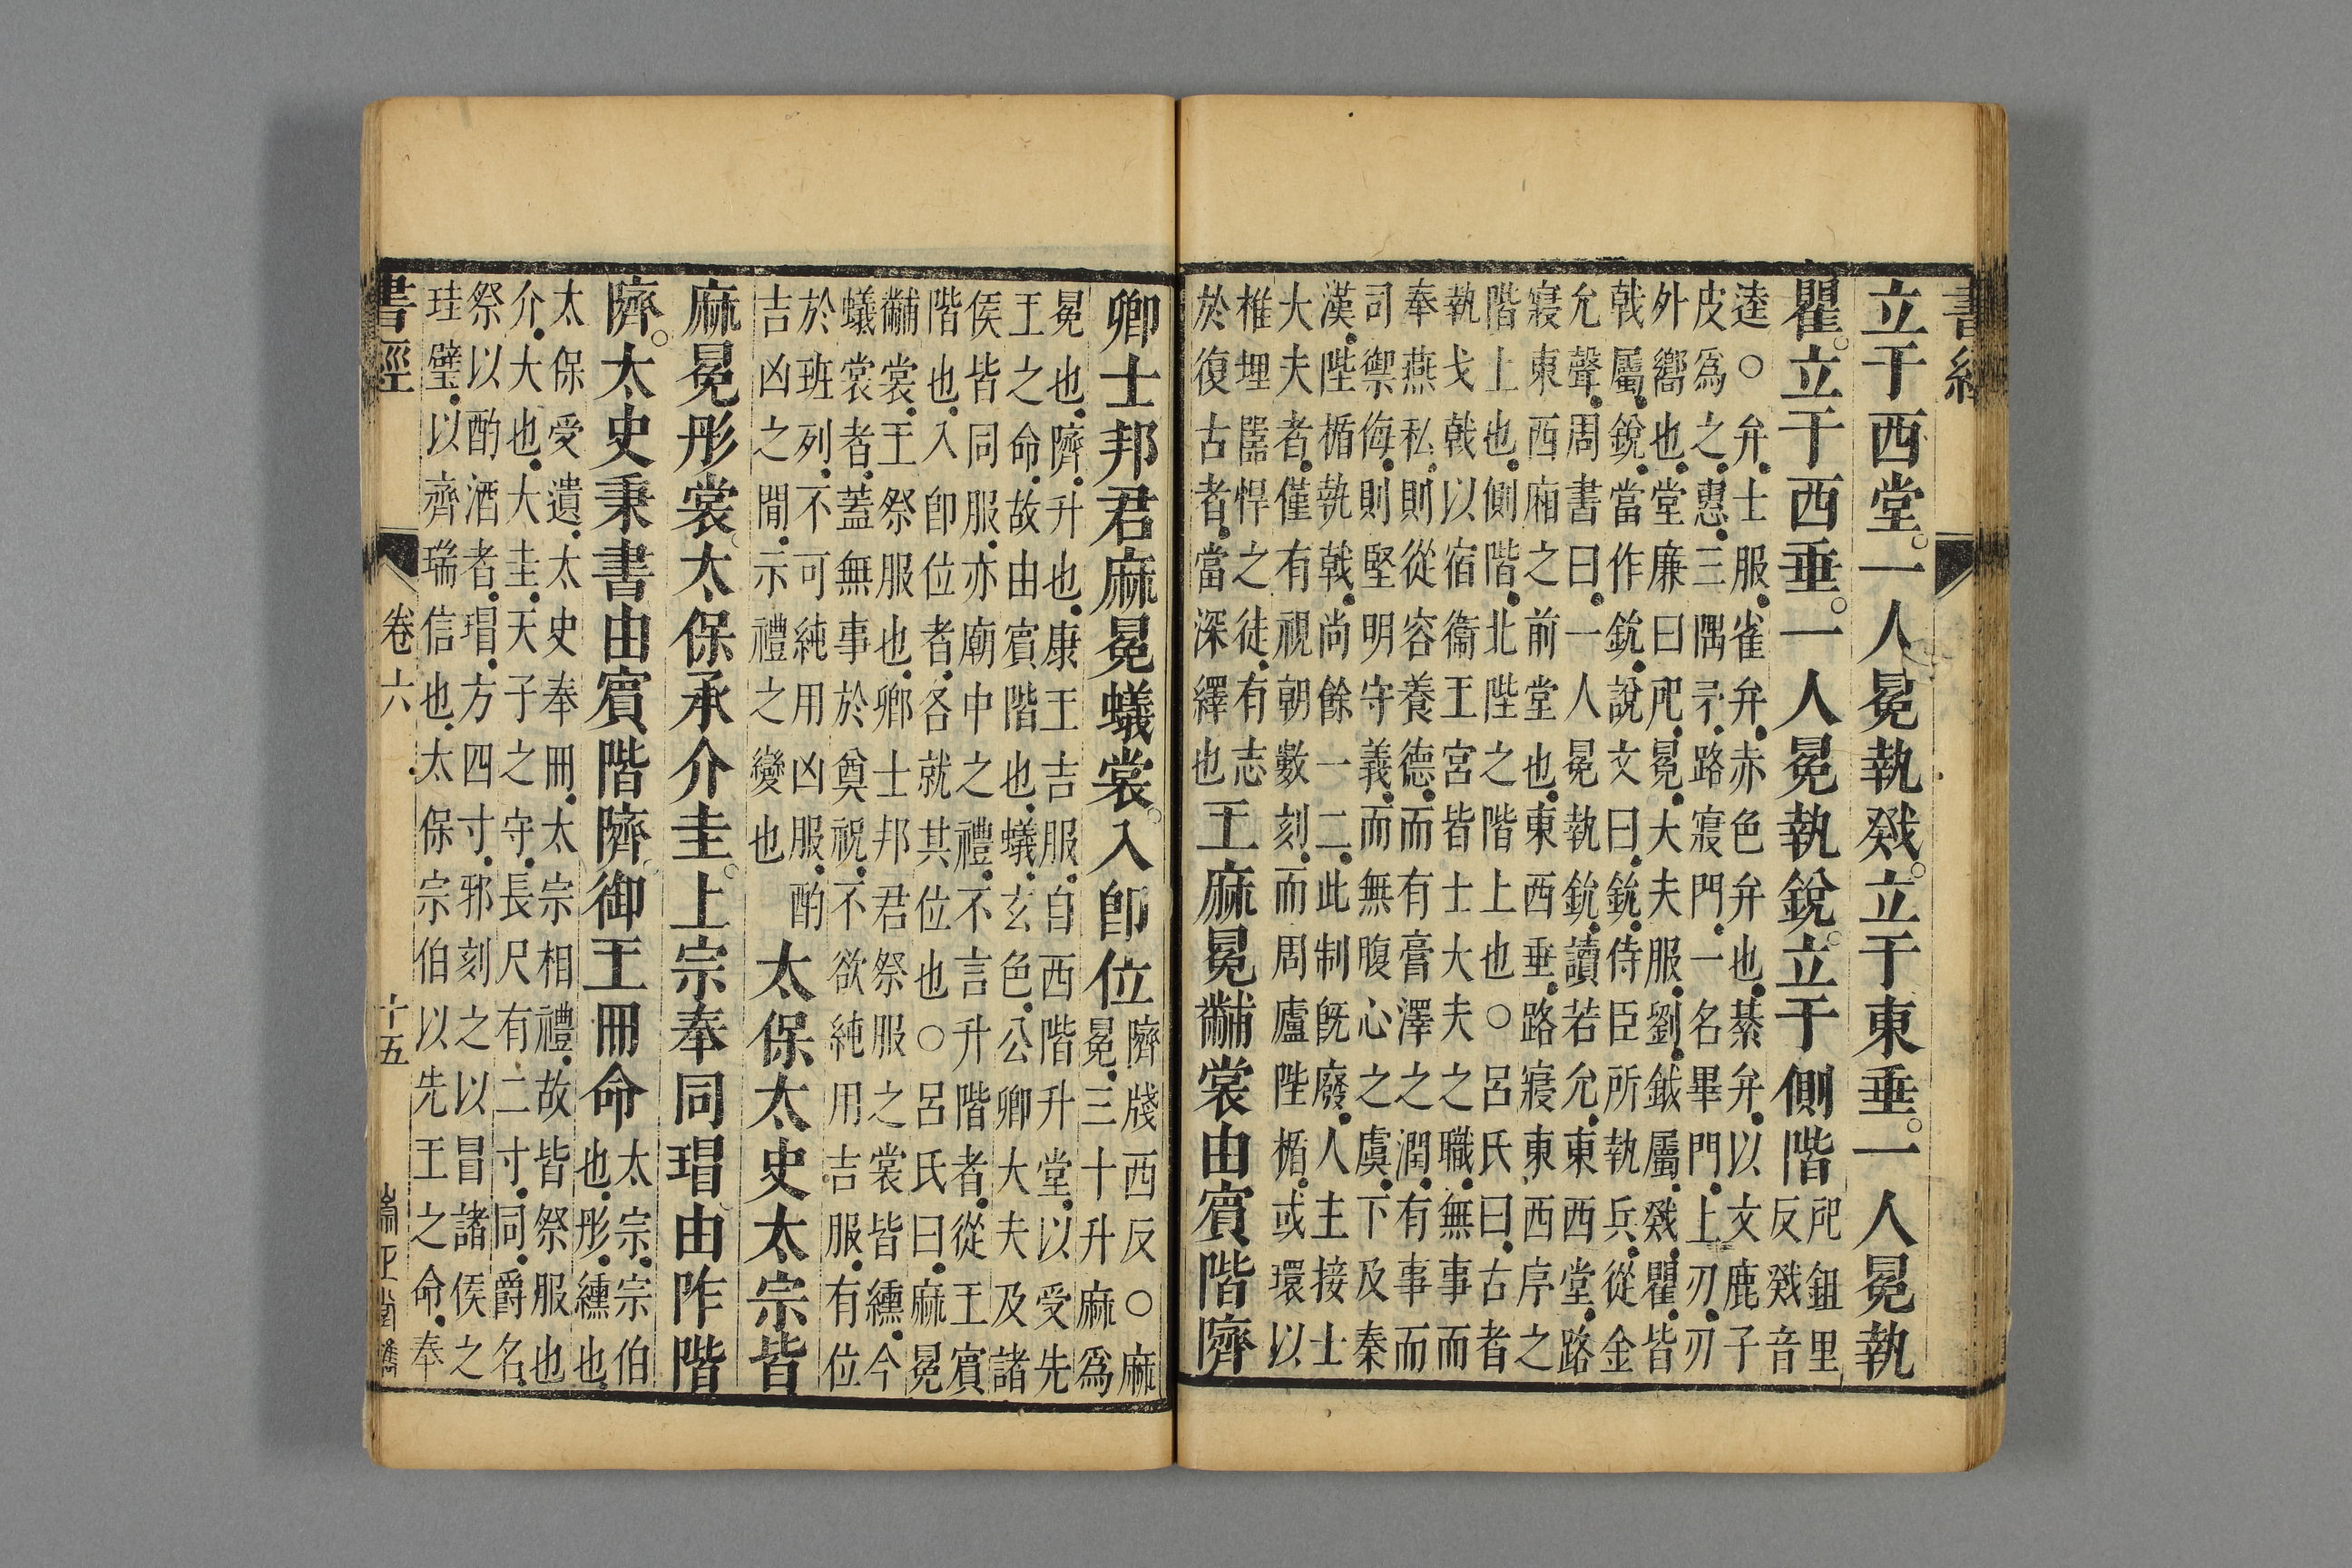 書經
立于西堂。一人冕執戣。立于東垂。一人冕執
瞿。立于西垂。一人冕執銳。立于側階
戺鉏里
反戣音
逵○弁士服雀弁赤色弁也綦弁以文鹿子
皮爲之惠三隅矛路寢門一名畢門上刃刃
外嚮也堂廉曰戺冕大夫服劉鉞屬戣瞿皆
戟屬銳當作鈗說文曰鈗侍臣所執兵從金
允聲周書曰一人冕執鈗讀若允東西堂路
寢東西廂之前堂也東西垂路寢東西序之
階上也側階北陛之階上也○呂氏曰古者
執戈戟以宿衞王宮皆士大夫之職無事而
奉燕私則從容養德而有膏澤之潤有事而
司禦侮則堅明守義而無腹心之虞下及秦
漢陛楯執戟尚餘一二此制旣廢人主接士
大夫者僅有視朝數刻而周廬陛楯或環以
椎埋嚚悍之徒有志
於復古者當深繹也
王麻冕黼裳由賓階隮
卿士邦君麻冕蟻裳。入卽位
隮牋西反○麻
冕三十升麻爲
冕也隮升也康王吉服自西階升堂以受先
王之命故由賓階也蟻玄色公卿大夫及諸
侯皆同服亦廟中之禮不言升階者從王賓
階也入卽位者各就其位也○呂氏曰麻冕
黼裳王祭服也卿士邦君祭服之裳皆纁今
蟻裳者蓋無事於奠祝不欲純用吉服有位
於班列不可純用凶服酌
吉凶之間示禮之變也
太保太史太宗皆
麻冕彤裳。太保承介圭。上宗奉同瑁。由阼階
隮。太史秉書由賓階隮。御王冊命
太宗宗伯
也彤纁也
太保受遺太史奉冊太宗相禮故皆祭服也
介大也大圭天子之守長尺有二寸同爵名
祭以酌酒者瑁方四寸邪刻之以冒諸侯之
珪璧以齊瑞信也太保宗伯以先王之命奉
書經
卷六
十五